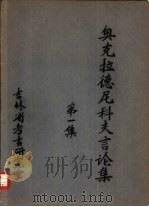 奥克拉德尼科夫言论集
第一集
吉林省考古研究室